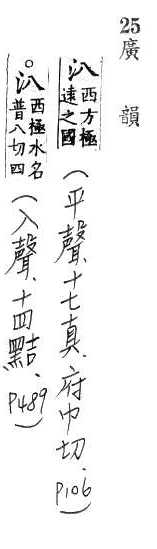 25廣韻
汃西方極遠之國（平聲、十七真、府巾切、P106）
○汃西極水名普八切四（入聲、十四黠、P489）